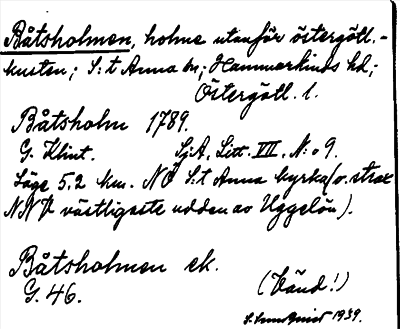 Båtsholmen, holme utanför östergötl.-
kusten; S:t Anna sn; Hammarkinds hd;
Östergötl. l.
Båtsholm 1789.
G. Klint. SjA, Litt. VII, N:o 9.
Läge 5,2 km. NÖ S:t Anna kyrka (o. strax
NNV västligaste udden av Uggelön).
Båtsholmen ek.
G. 46.
(Vänd!)
S. Sundquist 1939.